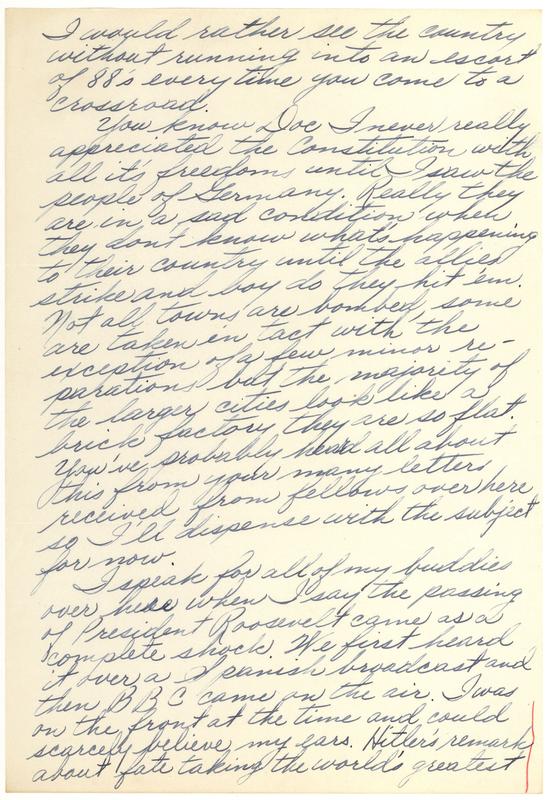 I would rather see the country
without running into an escort
of 88's everytime you come to a
crossroad.
You know Doc I never really
appreciated the Constitution with
all it's freedoms until I saw the
people of Germany. Really they
are in a sad condition when
they don't know what's happening
to their country until the allies
strike and boy do they hit 'em.
Not all towns are bombed, some
are taken in tact with the
exception of a few minor re-
parations but the majority of
the larger cities look like a
brick factory they are so flat.
You've probably heard all about
this from your many letters
received from fellows over here
so I'll dispense with the subject
for now.
I speak for all of my buddies
over here when I say the passing
of President Roosevelt came as a
complete shock. We first heard
it over a Spanish broadcast and
then BBC came on the air. I was
on the front at the time and could
scarcely believe my ears. Hitler's remark
about fate taking the world's greatest